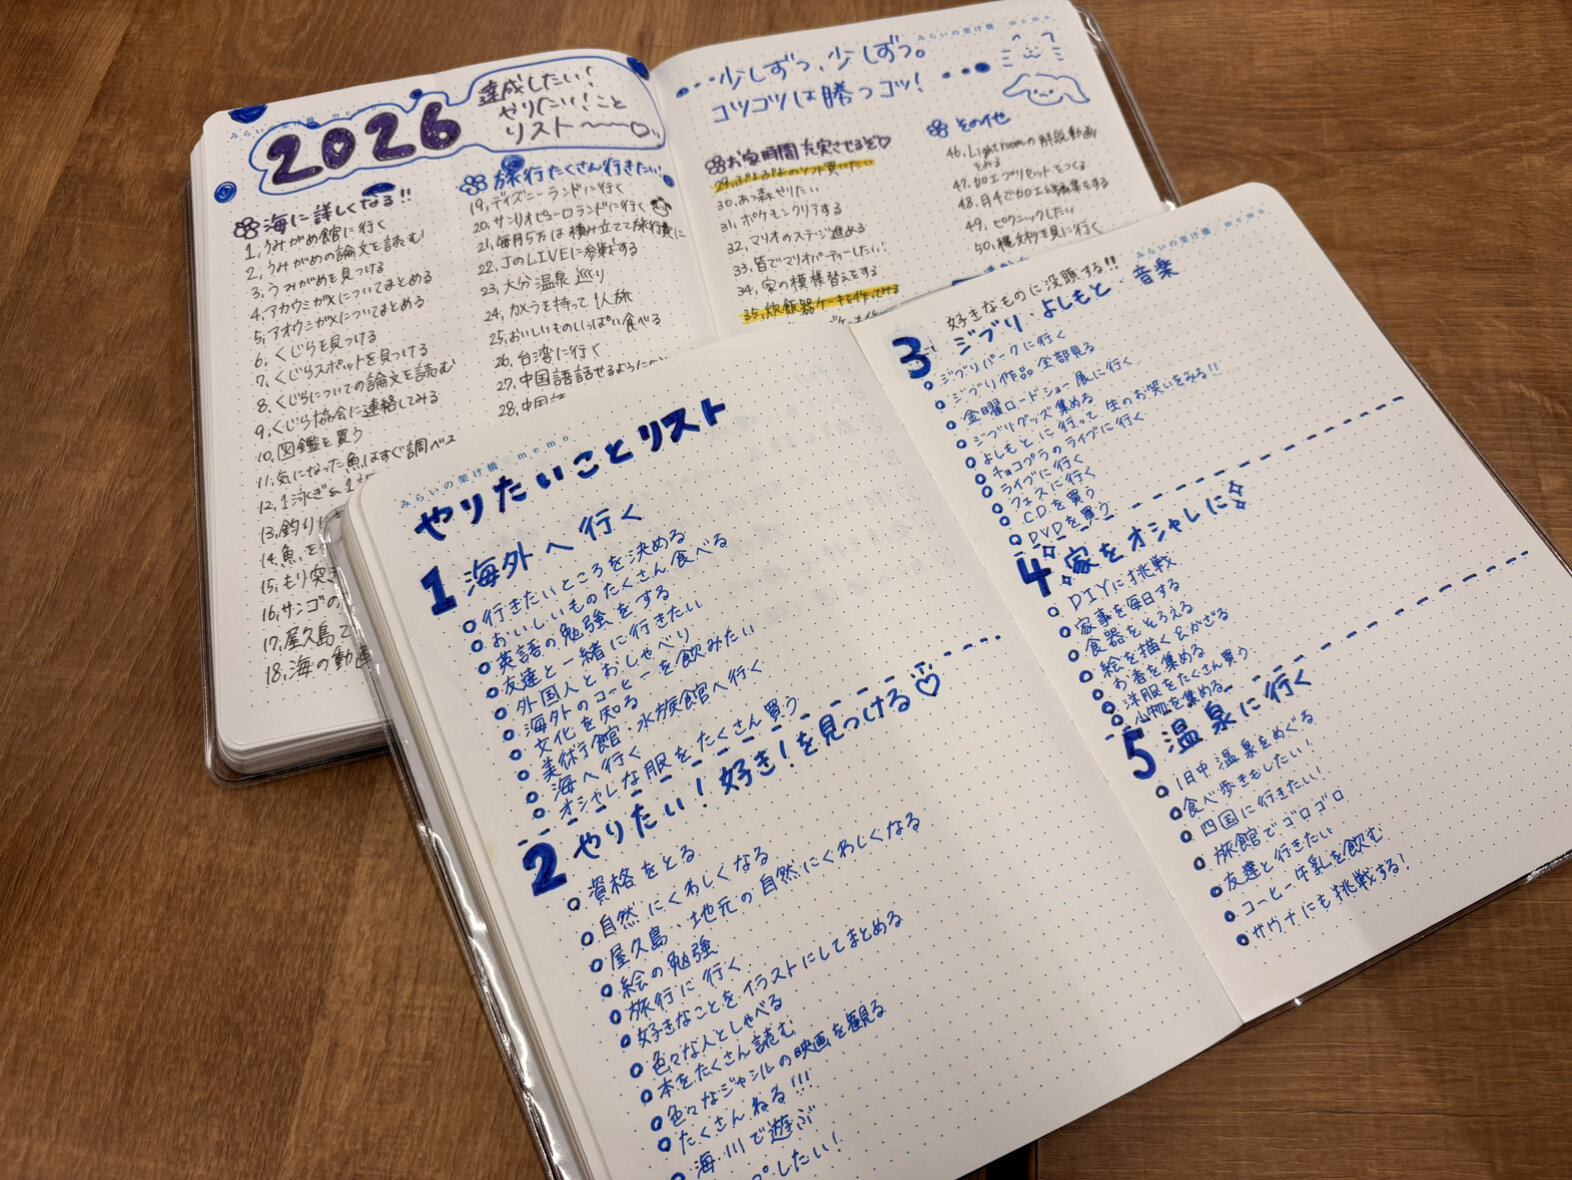 みらいの架け橋 memo
2026
達成したい!
やりたい!こと
リスト〜〜〜
海に詳しくなる!!
1, うみがめ館に行く
2, うみがめの論文を読む
3, うみがめを見つける
4, アカウミガメについてまとめる
5, アオウミガメについてまとめる
6, くじらを見つける
7, くじらスポットを見つける
8, くじらについての論文を読む
9, くじら協会に連絡してみる
10, 図鑑を買う
11, 気になった魚はすぐ調べる
12, 1泳ぎ&
13, 釣りに
14, 魚、を
15, もり突き
16, サンゴの
17, 屋久島で
18, 海の動
旅行たくさん行きたい!
19, ディズニーランドに行く
20, サンリオピューロランドに行く
21, 毎月5万は積み立てて旅行費に
22, JのLIVEに参戦する
23, 大分温泉巡り
24, カメラを持って1人旅
25, おいしいものいっぱい食べる
26, 台湾に行く
27, 中国語話せるように
28, 中国
みらいの架け橋 memo
少しずつ、少しずつ。
コツコツは勝つコツ!
お家時間充実させるぞ♡
29, ぷよぷよのソフト買いたい
30, あつ森やりたい
31, ポケモンクリアする
32, マリオのステージ進める
33, 皆でマリオパーティーしたい!
34, 家の模様替えをする
35, 炊飯器ケーキを作ってみる
その他
46, Lightroomの解説動画
をみる
47, カエプリセットをつくる
48, 月4でカエ編集をする
49, ピクニックしたい
50, 種子島を見に行く
みらいの架け橋 memo
やりたいことリスト
1 海外へ行く
行きたいところを決める
おいしいものたくさん食べる
英語の勉強をする
友達と一緒に行きたい
外国人とおしゃべり
海外のコーヒーを飲みたい
文化を知る
美術館・水族館へ行く
海へ行く
オシャレな服をたくさん買う
2 やりたい!好き!を見つける♡
資格をとる
自然にくわしくなる
屋久島、地元の自然にくわしくなる
絵の勉強
旅行に行く
好きなことをイラストにしてまとめる
色々な人としゃべる
本をたくさん読む
色々なジャンルの映画を観る
たくさんねる!!!
海川で遊ぶ
プしたい!
みらいの架け橋 memo
好きなものに没頭する!!
3 ジブリ・よしもと・音楽
ジブリパークに行く
ジブリ作品全部見る
金曜ロードショー展に行く
ジブリグッズ集める
よしもとに行って生のお笑いをみる!!
チョコプラのライブに行く
ライブに行く
フェスに行く
CDを買う
DVDを買う
4 家をオシャレに
DIYに挑戦
家事を毎日する
食器をそろえる
絵を描く&かざる
お香を集める
洋服をたくさん買う
小物を集める
5 温泉に行く
1日中温泉をめぐる
食べ歩きもしたい!
四国に行きたい!
旅館でゴロゴロ
友達と行きたい
コーヒー牛乳を飲む
サウナにも挑戦する!